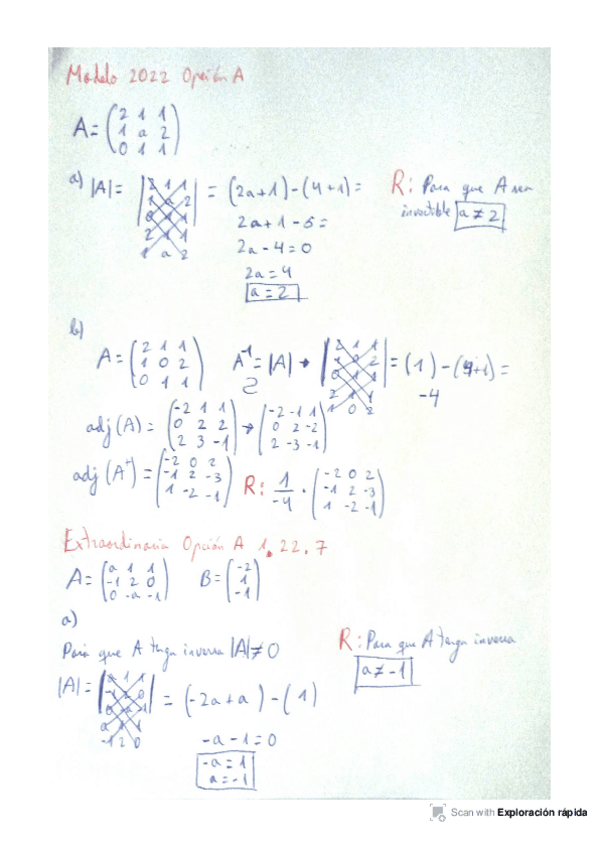 Modelo 2022 Opción A
A = (2 1 1
1 a 2
0 1 1)
a) |A| = |2 1 1
1 a 2
0 1 1|
2 1 1
1 a 2
= (2a+1)-(4+1)=
2a+1-5=
2a-4=0
2a=4
a=2
R: Para que A sea
invertible a≠2
b)
A = (2 1 1
1 0 2
0 1 1)
A⁻¹ = |A| → |2 1 1
1 0 2
0 1 1|
2 1 1
1 0 2
= (1)-(4+1)=
-4
adj(A) = (-2 1 1
0 2 2
2 3 -1) → (-2 -1 1
0 2 -2
2 -3 -1)
adj(Aᵗ) = (-2 0 2
-1 2 -3
1 -2 -1)
R: 1/-4 · (-2 0 2
-1 2 -3
1 -2 -1)
Extraordinaria Opción A 1.22.7
A = (a 1 1
-1 2 0
0 -a -1)
B = (-2
1
-1)
a)
Para que A tenga inversa |A|≠0
|A| = |a 1 1
-1 2 0
0 -a -1|
a 1 1
-1 2 0
= (-2a+a)-(1)
-a-1=0
-a=1
a=-1
R: Para que A tenga inversa
a≠-1
Scan with Exploración rápida